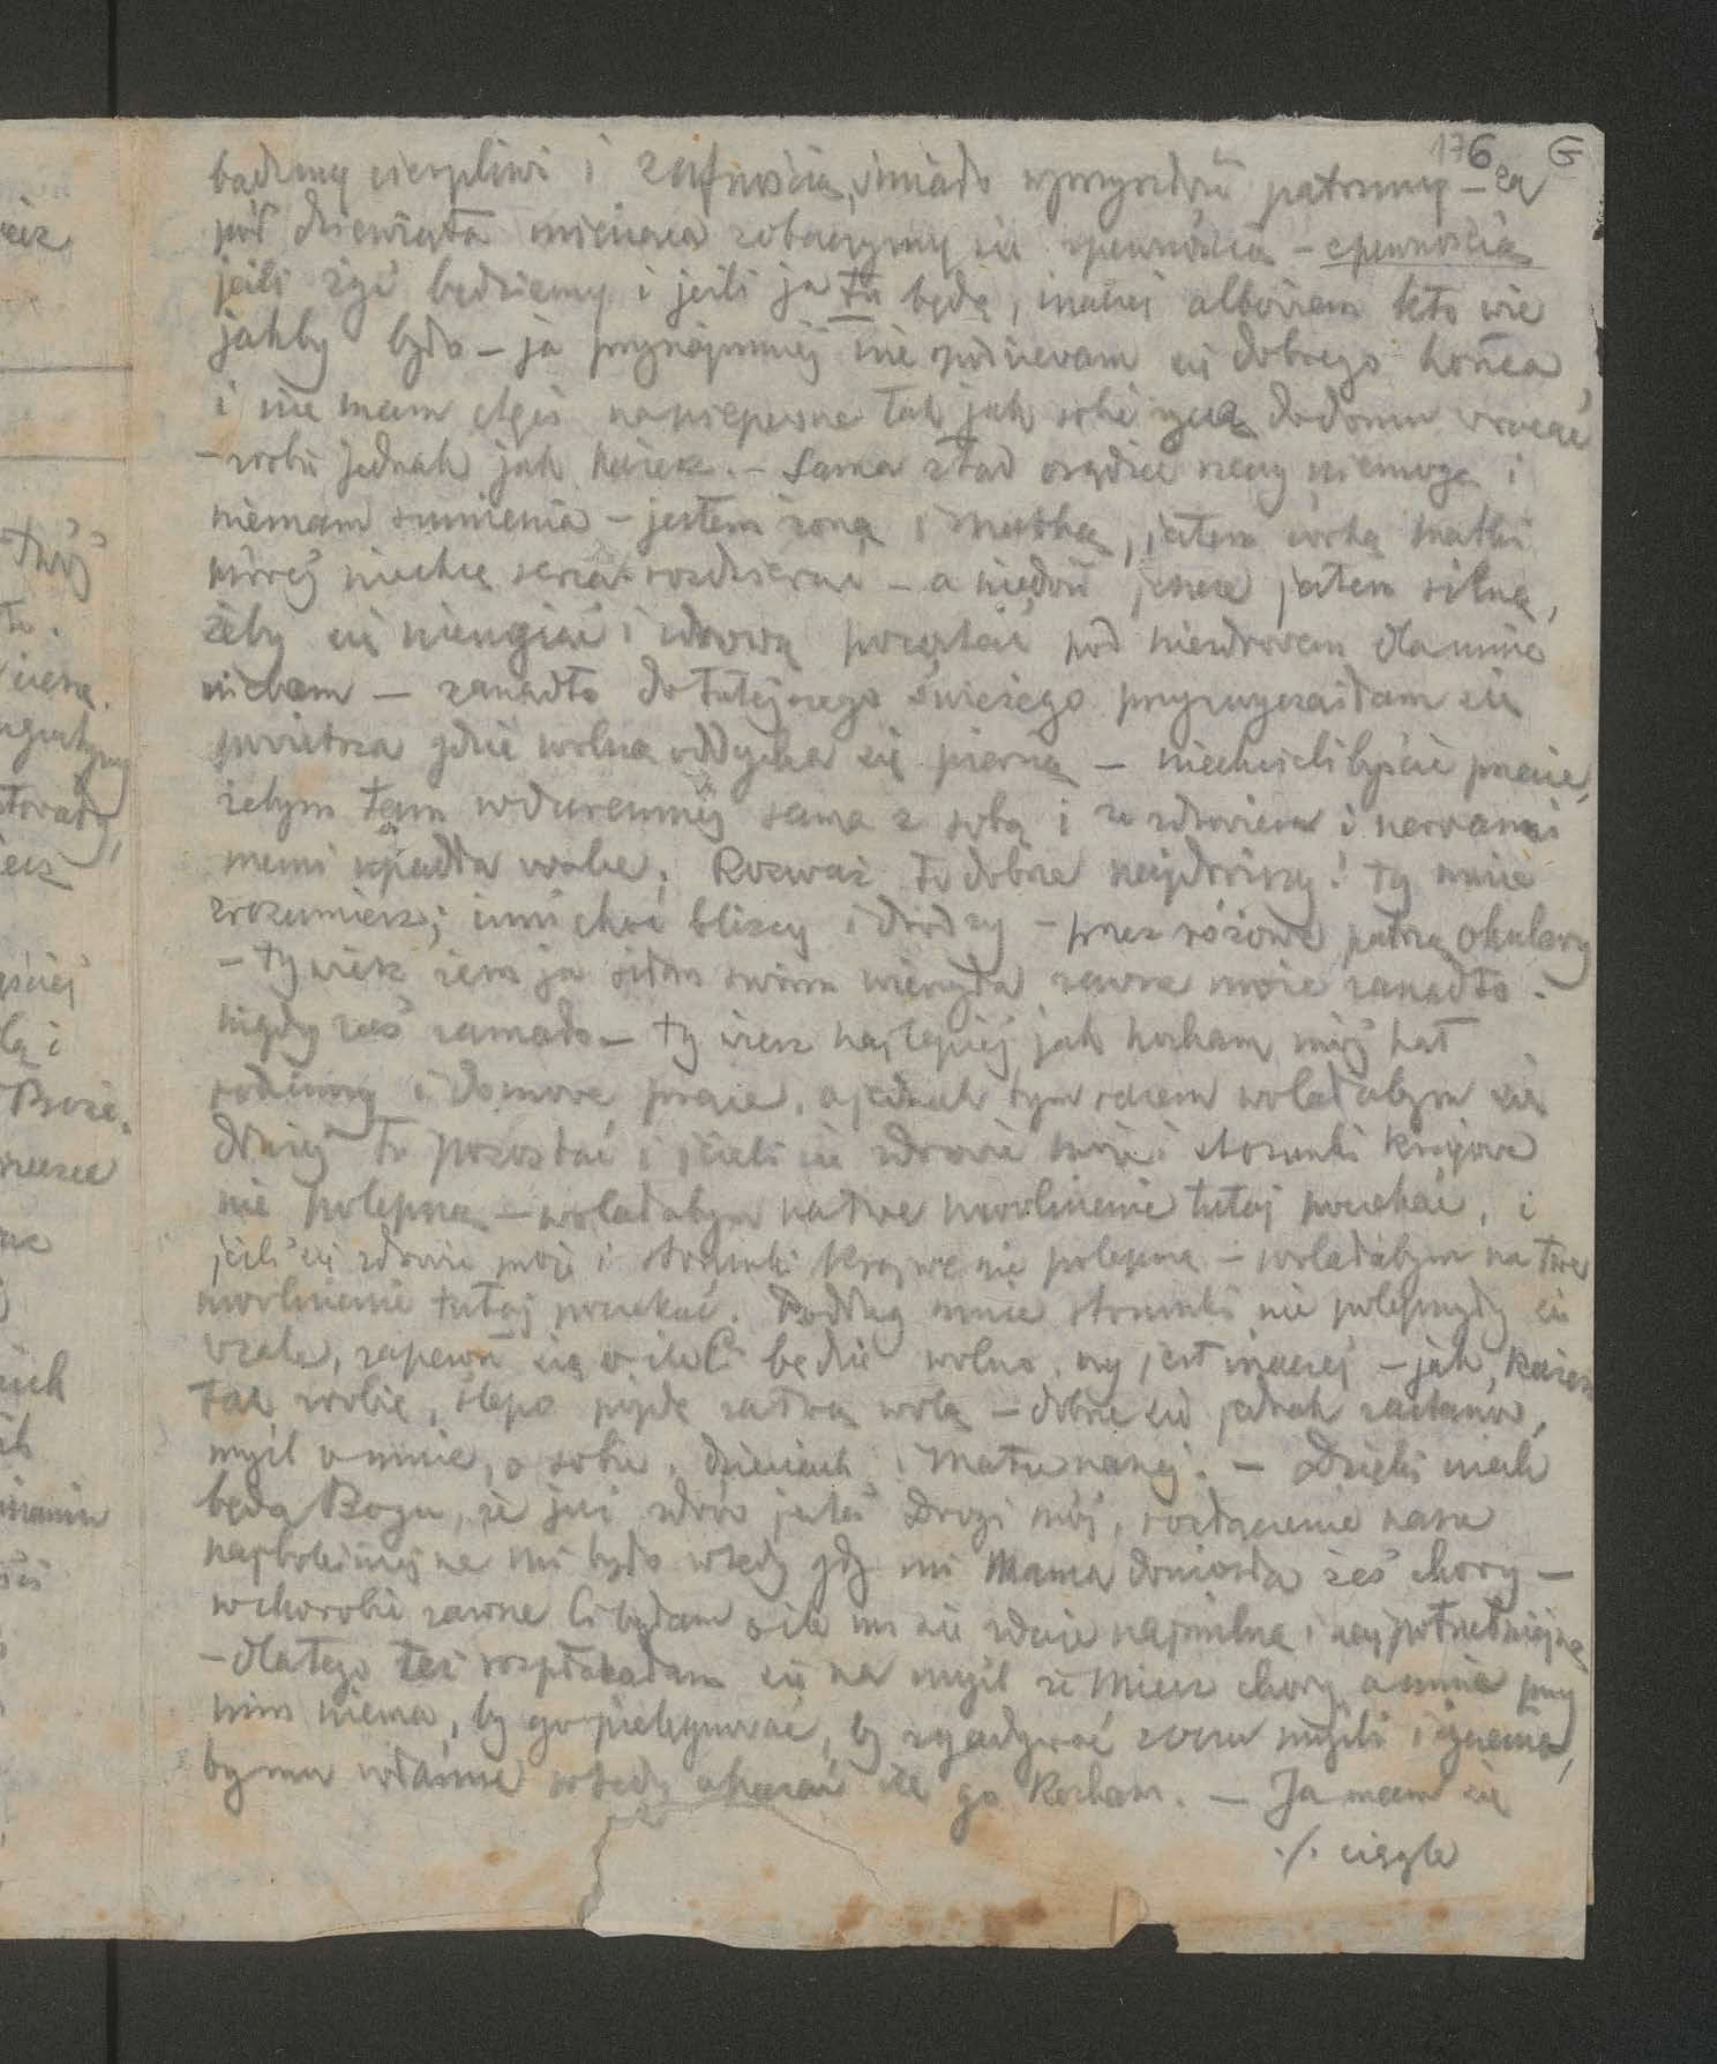 176 G
bądźmy cierpliwi i z ufnością, śmiało w przyszłość patrzmy – za
pół dziewięta miesiąca zobaczymy się zpewnością – zpewnością
jeśli żyć będziemy i jeśli ja tu będę, inaczej albowiem kto wie
jakby było – ja przynajmniej nie spodziewam się dobrego końca
i nie mam chęci na niepewne tak jak sobie życzą do domu wracać
– zrobię jednak jak każesz. – Sama ztąd osądzić rzeczy niemogę i
niemam sumienia – jestem żoną i matką, jestem córką matki
której niechcę serca rozdzierać – a niedość jeszcze jestem silną,
żeby się nieugiąć i zdrową pozostać pod niezdrowem dla mnie
niebem – zanadto do tutejszego świeżego przyzwyczaiłam się
powietrza gdzie wolną oddycha się piersią – niechcielibyście pracie,
żebym tam w durennej sama z sobą i ze zdrowiem i nerwami
memi upadła walce; Rozważ to dobrze najdroższy! ty mnie
zrozumiesz; inni choć bliscy i drodzy – przez różowe patrzą okulary
– ty wiesz żem ja siłom swoim wierzyła zawsze może zanadto
nigdy zaś zamało – ty wiesz najlepiej jak kocham mój kąt
rodzinny i domowe prace, a jednak tym razem wolałabym się
dłużej tu pozostać i jeżeli się zdrowie moje i stosunki krajowe
nie polepszą – wolałabym na twe uwolnienie tutaj poczekać, i
jeśli się zdrowie moje i stosunki krajowe nie polepszą – wolałabym na twe
uwolnienie tutaj poczekać. Podług mnie stosunki nie polepszyły się
wcale, zapewnij się o ile Ci będzie wolno, czy jest inaczej – jak każesz
tak zrobię, ślepo pójdę za twą wolą – dobrze się jednak zastanów,
myśl o mnie, o sobie, dzieciach i Matce naszej. – Dzięki niech
będą Bogu, że już zdrów jesteś Drogi mój, rozłączenie nasze
najboleśniejsze mi było wtedy gdy mi Mama doniosła żeś chory –
w chorobie zawsze Ci byłam o ile mi się zdaje najmilszą i najpotrzebniejszą
– dlatego też rozpłakałam się na myśl że Miecz chory a mnie przy
nim niema, by go pielęgnować, by zgadywać zoczu myśli i życzenia,
by mu właśnie wtedy okazać że go kocham. – Ja mam się
./. ciągle